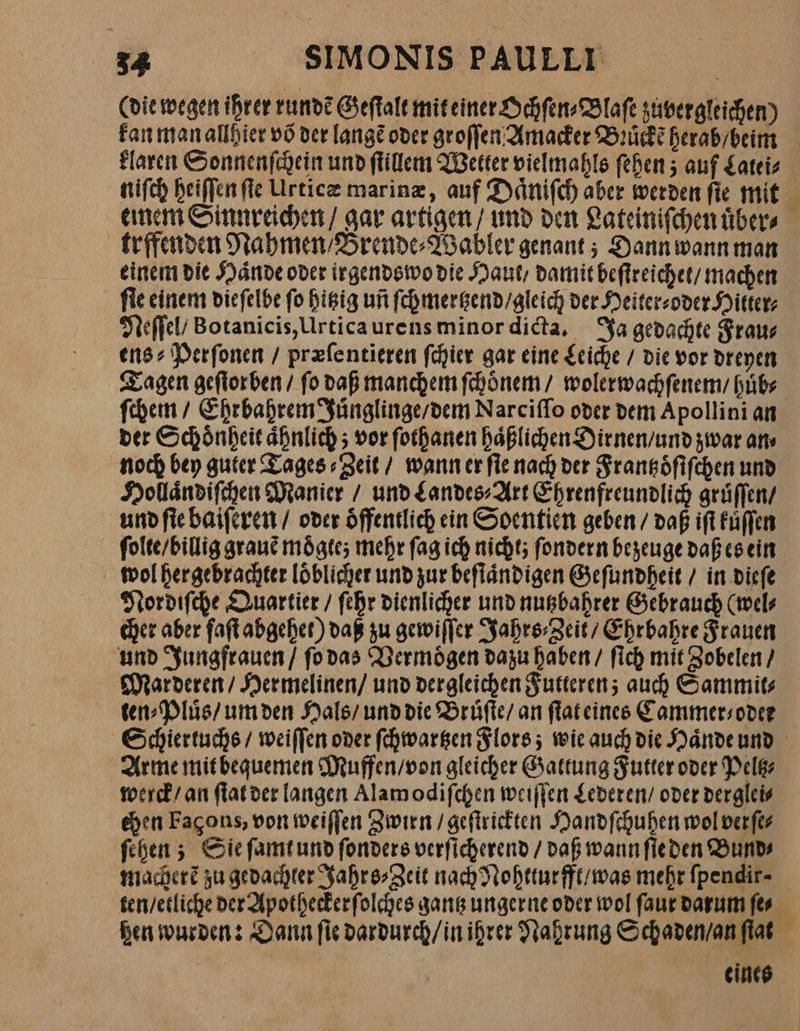 34 SIMONIS PAULLI
(die wegen ihrer rundẽ Geſtalt mit einer Ochſen⸗Blaſe zuvergleichen)
kan man allhier võ der langẽ oder groſſen Amacker Bruͤckẽ herab/beim
klaren Sonnenſchein und ſtillem Wetter vielmahls ſehen; auf Latei⸗
niſch heiſſen ſie Urticæ marinæ, auf Daͤniſch aber werden ſie mit
einem Sinnreichen / gar artigen / und den Lateiniſchen uͤber⸗
trffenden Nahmen/Brende⸗Wabler genant; Dann wann man
einem die Haͤnde oder irgendswo die Haut/ damit beſtreichet/ machen
ſie einem dieſelbe ſo hitzig uñ ſchmertzend/gleich der Heiter⸗oder Hitter⸗
Neſſel/ Botanicis, Urtica urens minor dicta. Ja gedachte Frau⸗
ens⸗ Perſonen / præſentieren ſchier gar eine Leiche / die vor dreyen
Tagen geſtorben / ſo daß manchem ſchoͤnem / wolerwachſenem/ huͤb⸗
ſchem / Ehrbahrem Juͤnglinge/dem Narciſſo oder dem Apollini an
der Schoͤnheit aͤhnlich; vor ſothanen haͤßlichen Dirnen/und zwar an⸗
noch bey guter Tages⸗Zeit / wann er ſie nach der Frantzoͤſiſchen und
Hollaͤndiſchen Manier / und Landes⸗Art Ehrenfreundlich gruͤſſen/
und ſie baiſeren / oder oͤffentlich ein Soentien geben / daß iſt kuͤſſen
ſolte/billig grauẽ moͤgte; mehr ſag ich nicht; ſondern bezeuge daß es ein
wol hergebrachter loͤblicher und zur beſtaͤndigen Geſundheit / in dieſe
Nordiſche Quartier / ſehr dienlicher und nutzbahrer Gebrauch (wel⸗
cher aber faſt abgehet) daß zu gewiſſer Jahrs⸗Zeit / Ehrbahre Frauen
und Jungfrauen / ſo das Vermoͤgen dazu haben / ſich mit Zobelen /
Marderen / Hermelinen/ und dergleichen Futteren; auch Sammit⸗
ten⸗Pluͤs/ um den Hals/ und die Bruͤſte/ an ſtat eines Cammer⸗oder
Schiertuchs / weiſſen oder ſchwartzen Flors; wie auch die Haͤnde und
Arme mit bequemen Muffen/von gleicher Gattung Futter oder Peltz⸗
werck/ an ſtat der langen Alamodiſchen weiſſen Lederen/ oder derglei⸗
chen Façons, von weiſſen Zwirn / geſtrickten Handſchuhen wol verſe⸗
ſehen; Sie ſamt und ſonders verſicherend / daß wann ſie den Bund⸗
macherẽ zu gedachter Jahrs⸗Zeit nach Nohtturfft/was mehr ſpendir-
ten/etliche der Apothecker ſolches gantz ungerne oder wol ſaur darum ſe⸗
hen wurden: Dann ſie dardurch/in ihrer Nahrung Schaden/an ſtat
eines